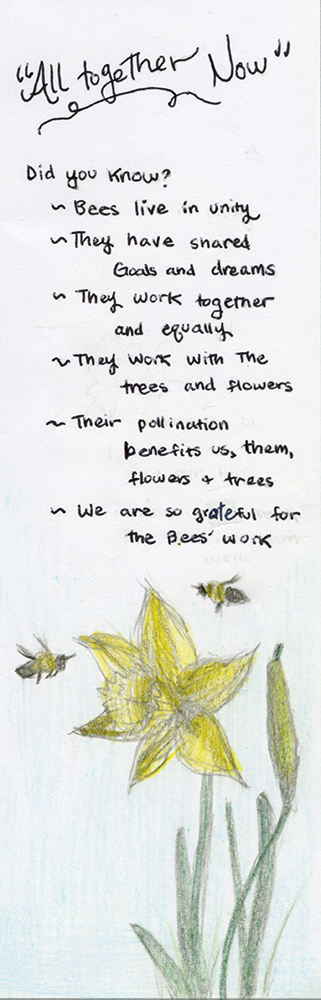 "All together Now"
Did you know?
~ Bees live in unity
~ They have shared
Goals and dreams
~ They work together
and equally
~ They work with The
trees and flowers
~ Their pollination
benefits us, them,
flowers + trees
~ We are so grateful for
the Bees' work